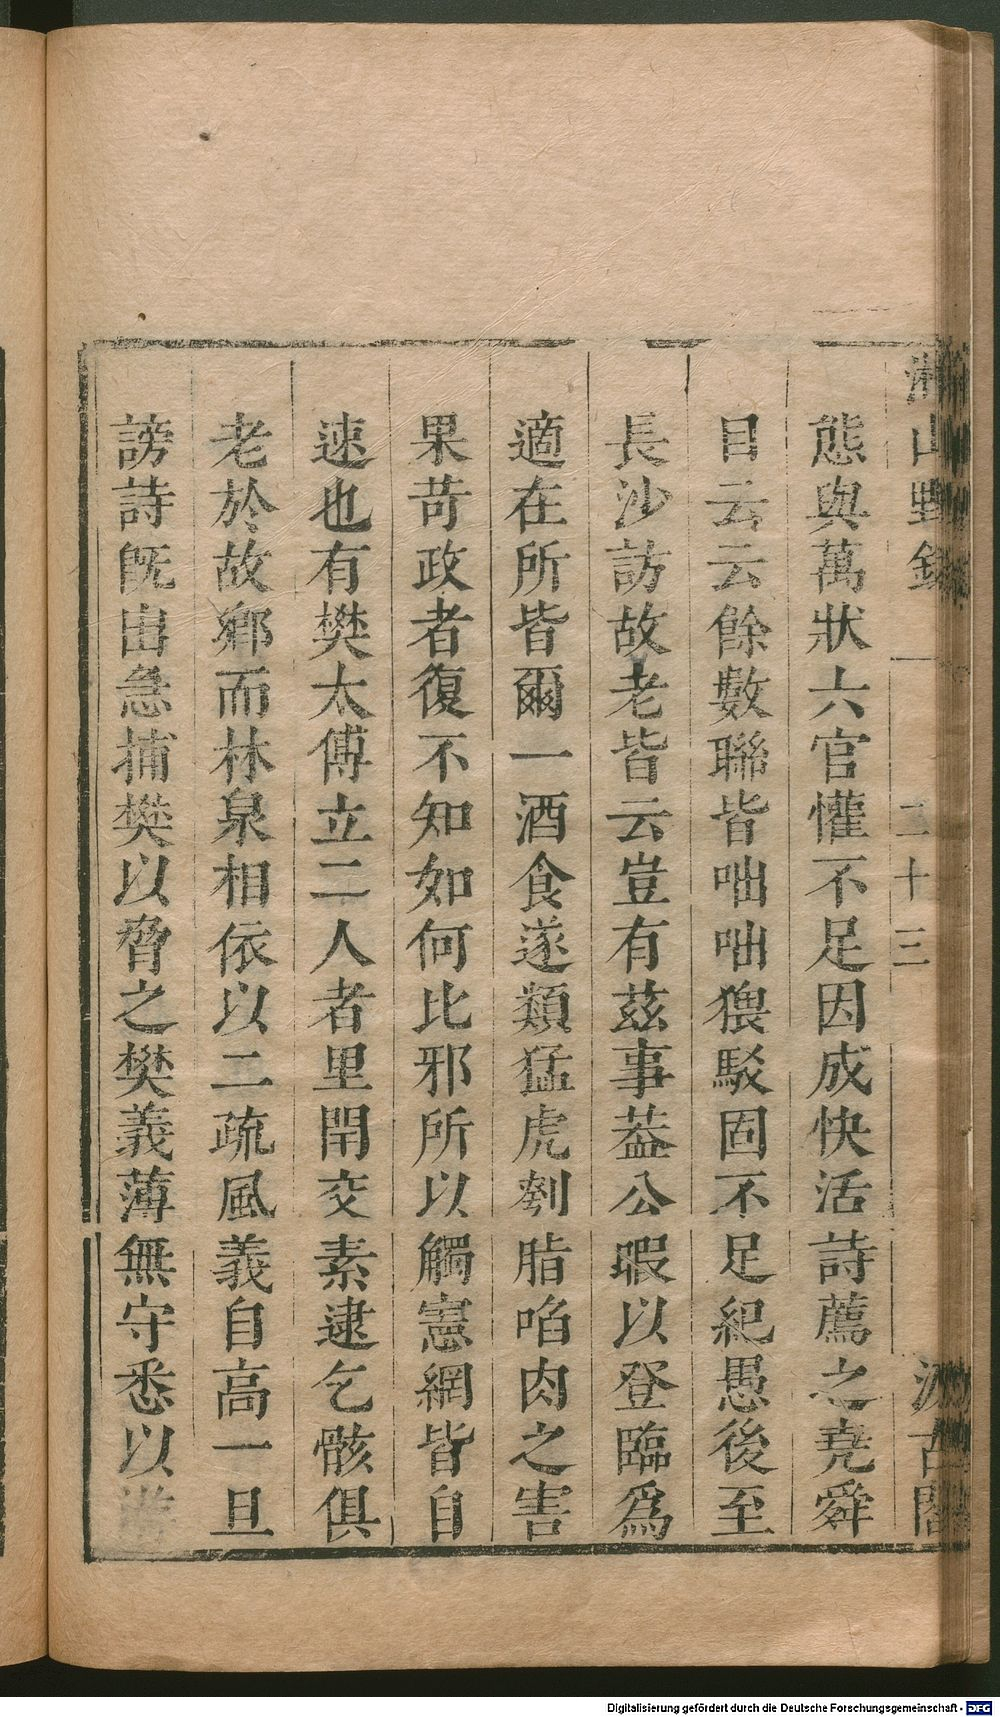 湘山野錄 一 二十三 汲古閣
態與萬狀六官懽不足因成快活詩薦之堯舜
目云云餘數聯皆咄咄猥駁固不足紀愚後至
長沙訪故老皆云豈有茲事葢公暇以登臨爲
適在所皆爾一酒食遂類猛虎刳脂啗肉之害
果苛政者復不知如何比邪所以觸憲網皆自
速也有樊太傅立二人者里閈交素逮乞骸俱
老於故鄉而林泉相依以二疏風義自高一旦
謗詩旣出急捕樊以脅之樊義薄無守悉以
Digitalisierung gefördert durch die Deutsche Forschungsgemeinschaft - DFG